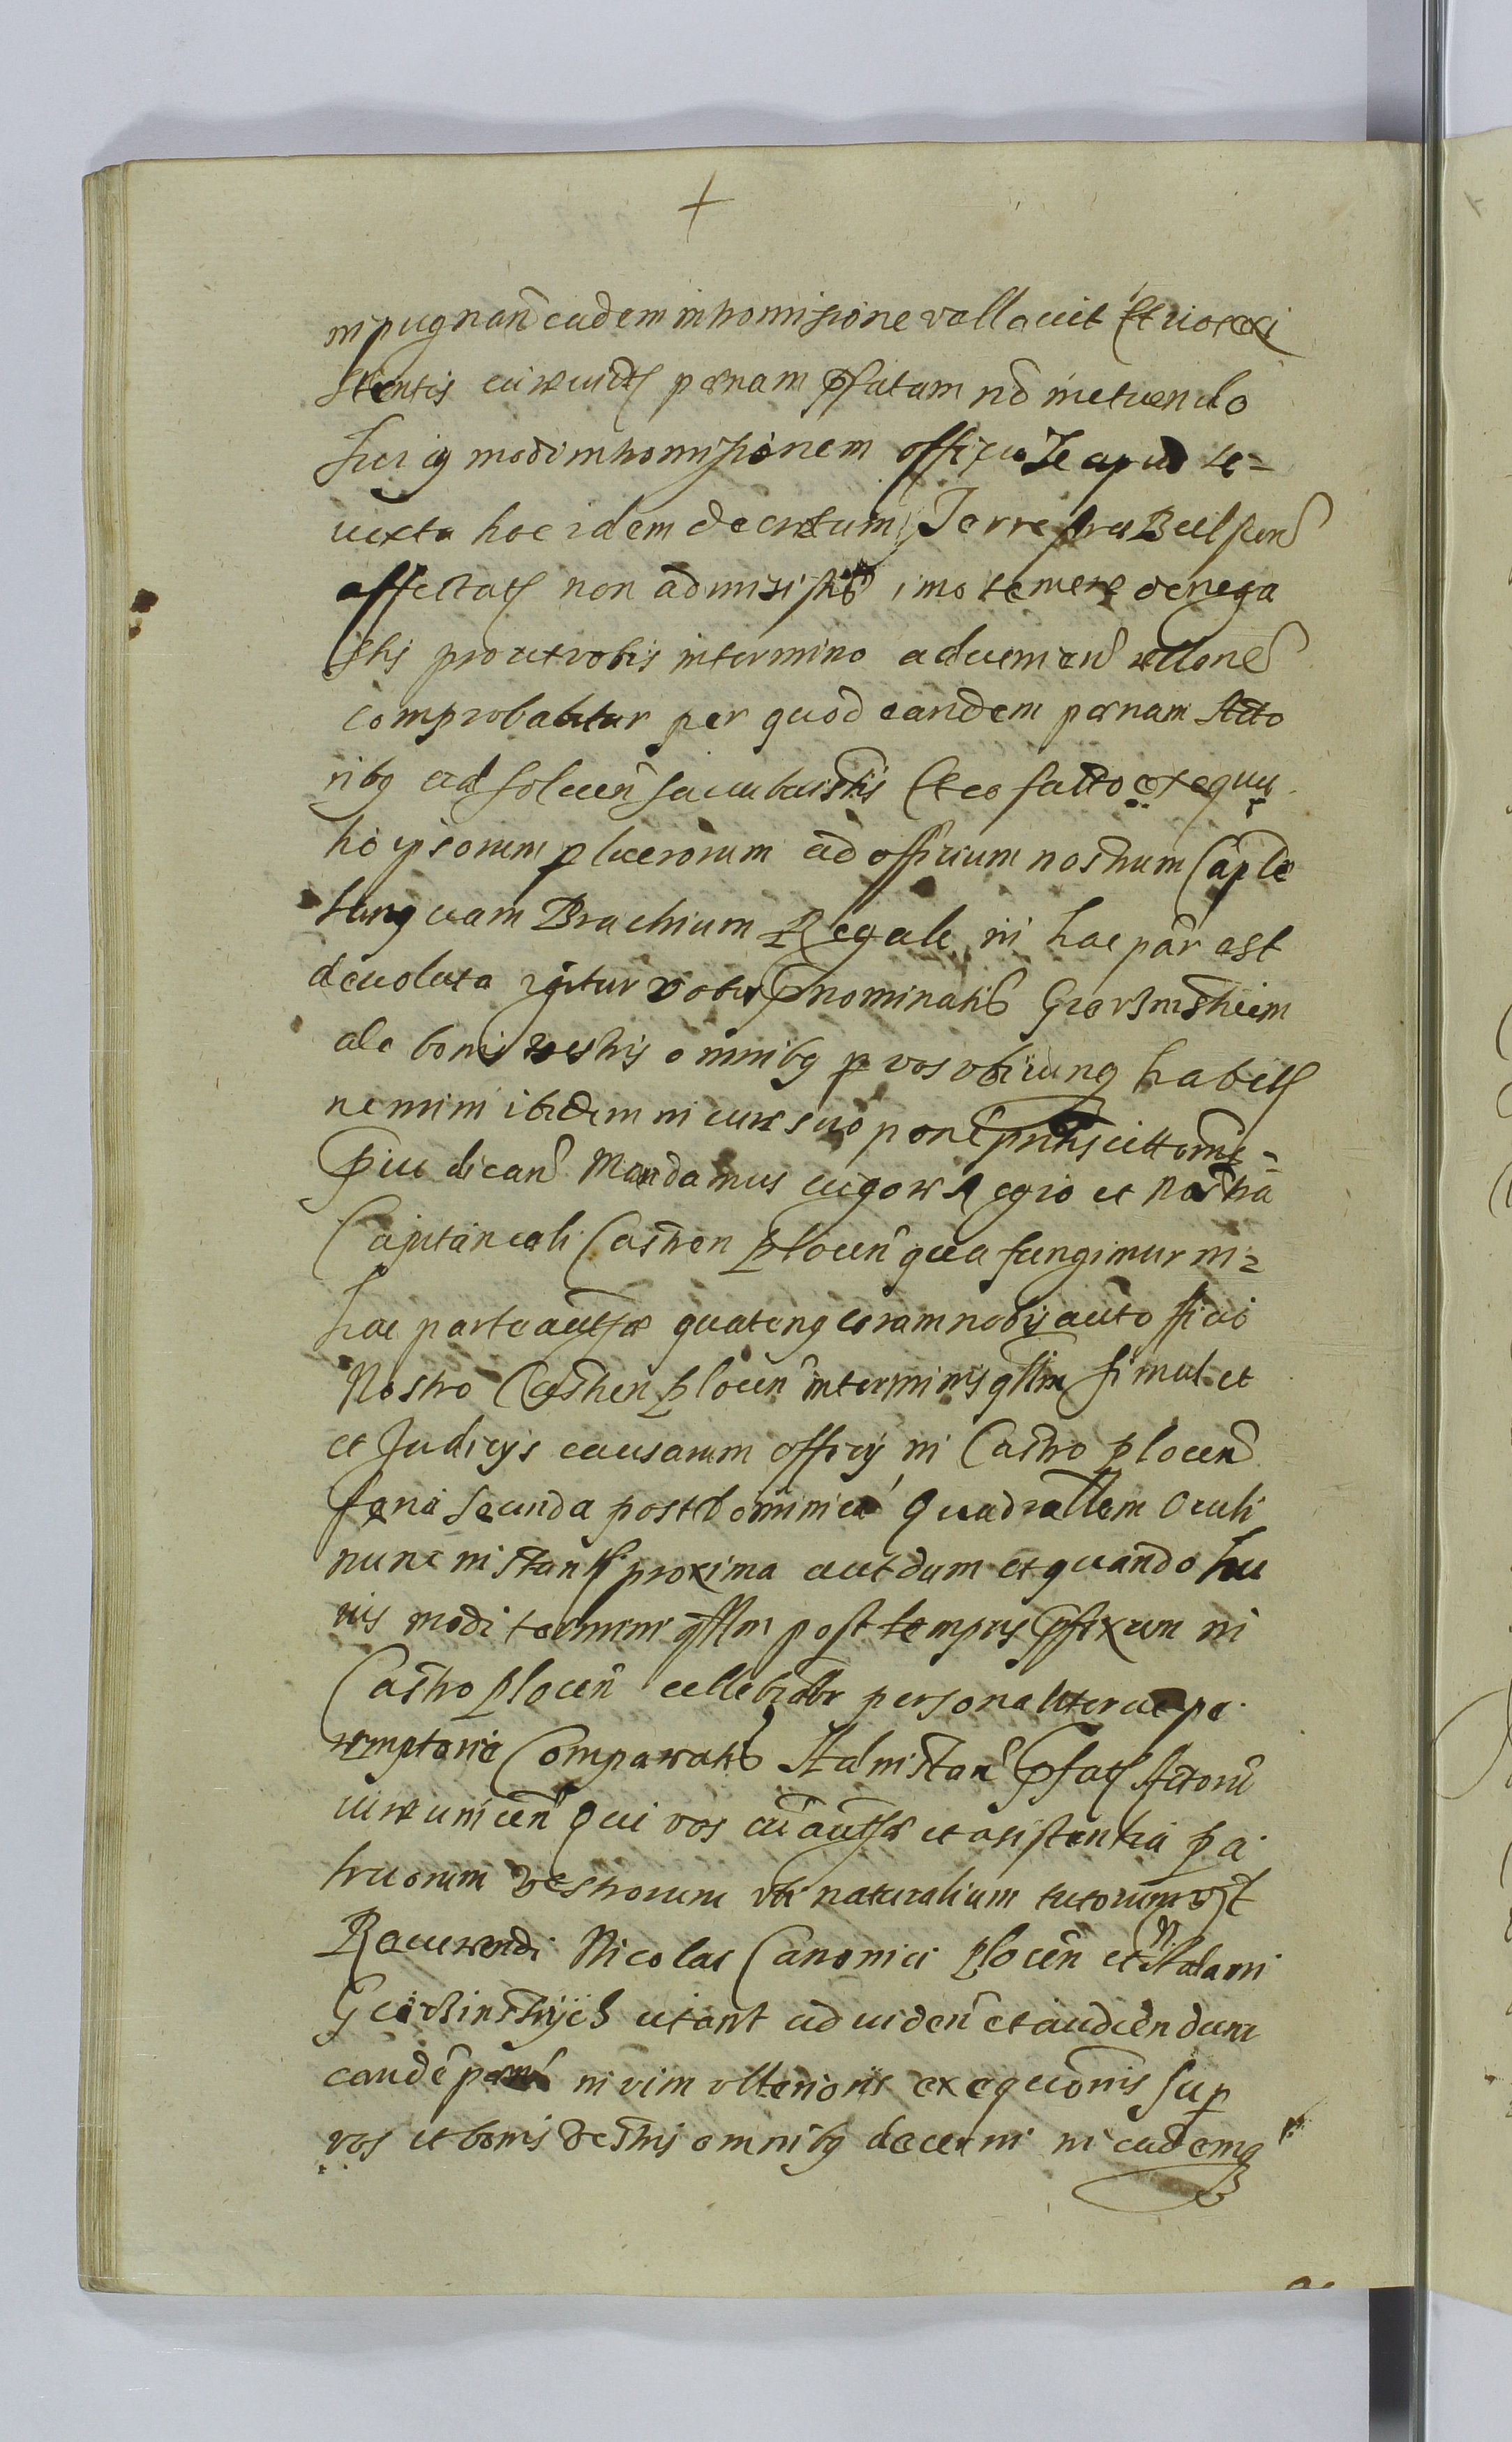 inpugnan eadem inhomisione vallavit Et vior exi
stentis eiusdem poenam pfatam no metuendo
huiq modi inhomisionem officiose apud se=
iuxta hoc idem decretum Terrestre Bielscen
affectatis non admisistis imo temere denega
stis prout vobis in termino adveniend rlone
comprobabitur per quod eandem poenam Acto
ribq ad soluen succubuistis Et eo facto exequu
tio ipsorum plucrorum ad officium nostrum Caple
tanquam Brachium Regale in hac par est
devoluta igitur vobis pnominatis
de bonis vestris omnibq p vos ubicunq habitis
nemini ibidem in iure suo
piudican Mandamus vigore Regio et Nostra
Capitaneali Castren Plocen qua fungimur in=
hac parte autte quatenq coram nobis aut officio
Nostro Castren Plocen in terminis qllm simul et
et Judicijs causarum officij in Castro Plocen
feria secunda post Dominica Quadrallem Oculi
nunc instanti proxima aut dum et quando hu
ius modi termini qllm post tempus pfixum in
Castro Plocen cellebrabr personaliter ac pe
remptorie Comparatis Ad instan pfatis Actoru
Qui vos cu autte et asistentia pa
truorum vestrorum uti naturalium tutorum vzt
Reverendi Nicolai Canonici Plocen et Adami
citant ad uiden et audiendum
eande poena in vim ulterioris exequonis sup
vos et bonis vestris omnibq decerni in eademq